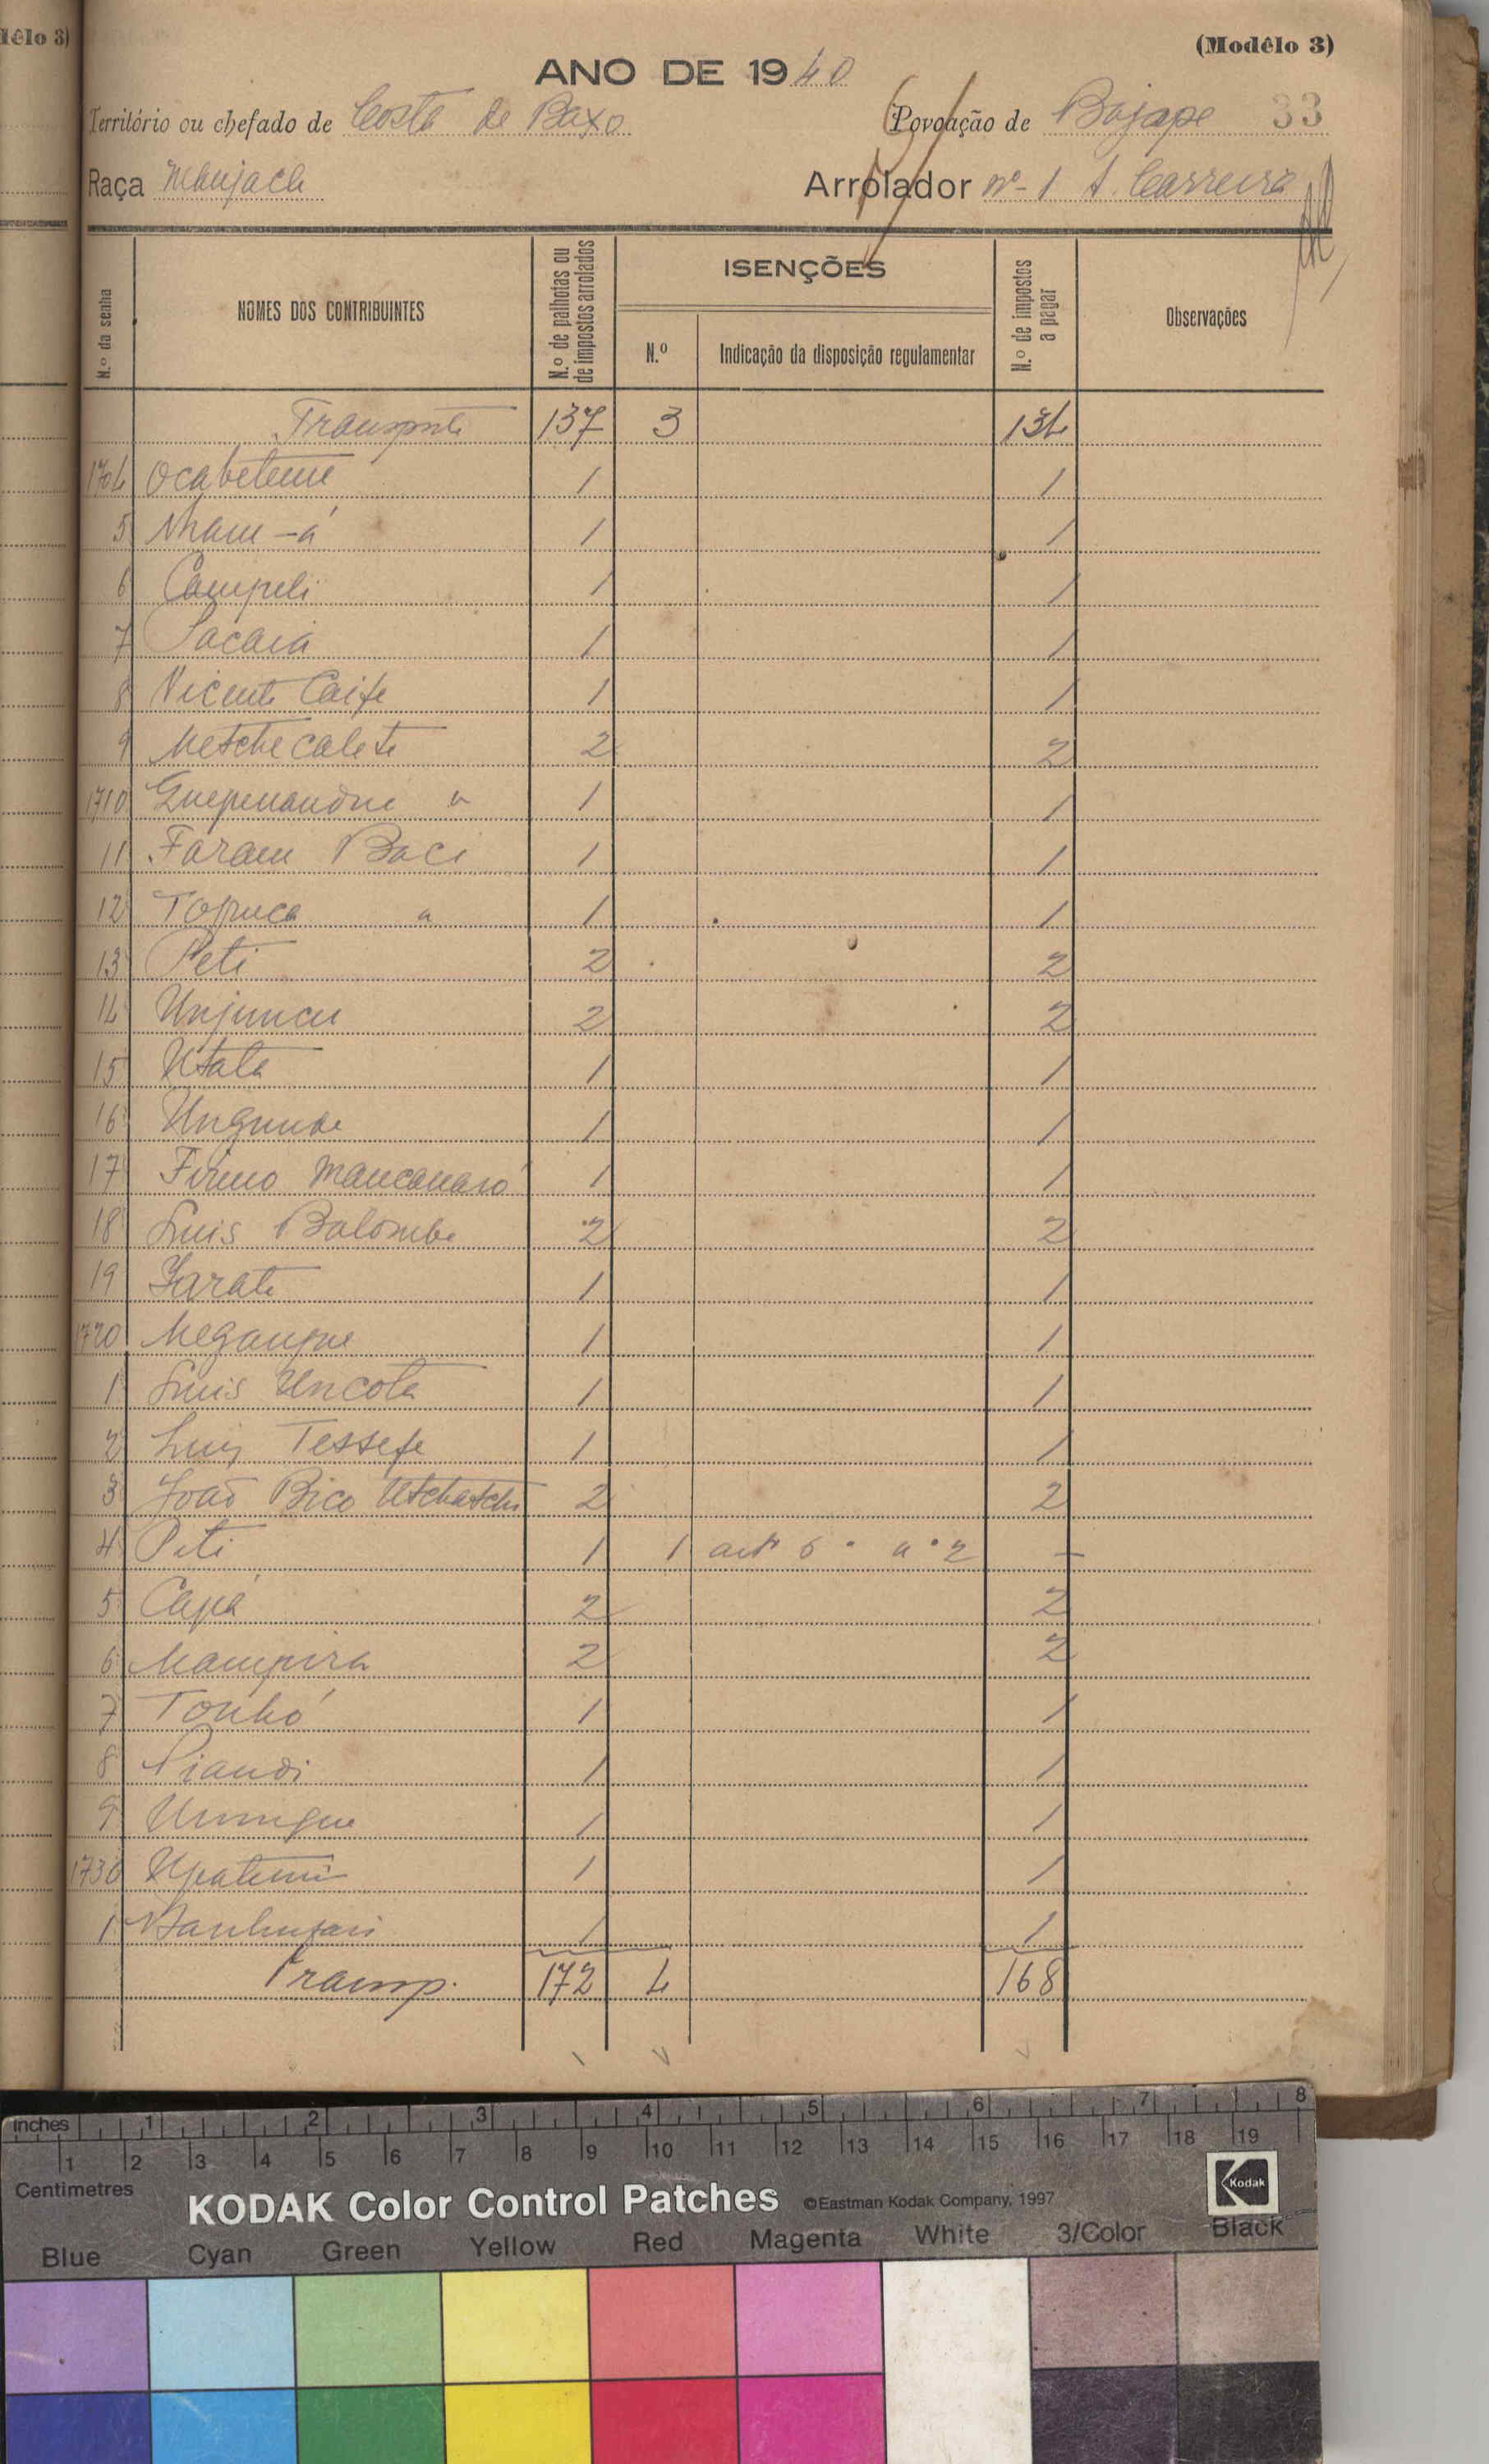 (Modêlo 3)
ANO DE 1940
Território ou chefado de Costa de Baxo Povoação de Bajope 33
Raça Manjaca Arrolador nº 1 A. Carreira
N.º da senha
NOMES DOS CONTRIBUINTES
N.º de palhotas ou de impostos arrolados
ISENÇÕES
N.º
Indicação da disposição regulamentar
N.º de impostos a pagar
Observações
Transporte 137 3 134
1704 Ocabeteme 1 1
5 Nham-á 1 1
6 Campeli 1 1
7 Sacaia 1 1
8 Vicente Caife 1 1
9 Metchecalete 2 2
1710 1 1
11 Faram Baci 1 1
12 Topuca 1 1
13 Peti 2 2
14 Unjuncu 2 2
15 Utata 1 1
16 Ungunde 1 1
17 Firmo Mancanaió 1 1
18 Luis Balombe 2 2
19 Jarate 1 1
1720 Megaupue 1 1
1 Luis Uncota 1 1
2 Luis Tessefe 1 1
3 João Bico Utchatche 2 2
4 Peti 1 1 artº 6º nº 2 -
5 Capá 2 2
6 Mampira 2 2
7 Tonhó 1 1
8 Piandi 1 1
9 1 1
1730 Upatemi 1 1
1 1 1
Transp. 172 4 168
inches 1 2 3 4 5 6 7 8
1 2 3 4 5 6 7 8 9 10 11 12 13 14 15 16 17 18 19
Centimetres
KODAK Color Control Patches ©Eastman Kodak Company, 1997 Kodak
Blue Cyan Green Yellow Red Magenta White 3/Color Black